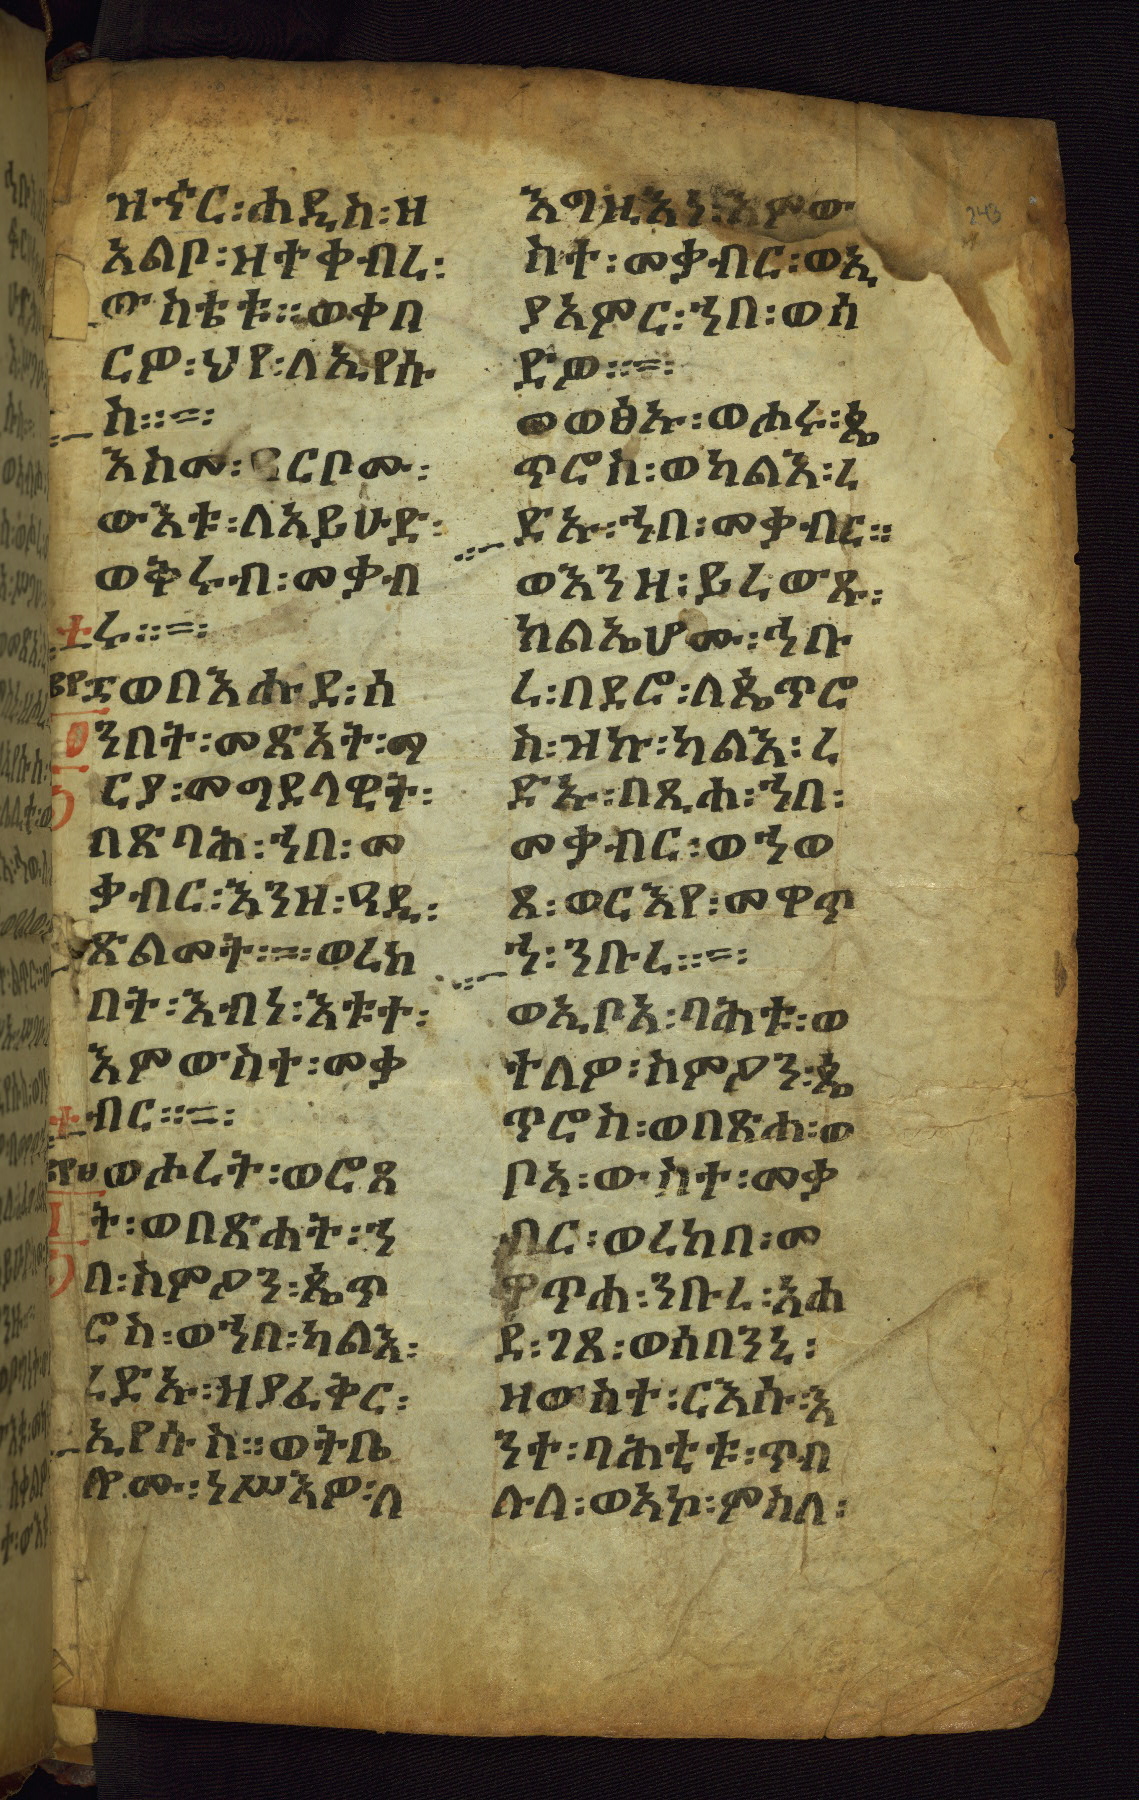 ዝኆር፡ሐዲስ፡ዘ
አልቦ፡ዘተቀብረ፡
ውስቴቱ።ወቀበ
ርዎ፡ህየ፡ለኢየሱ
ስ።=፡
እስመ፡ዓርቦሙ፡
ውእቱ፡ለአይሁድ፡
ወቅሩብ፡መቃብ
ሩ።=፡
ወበእሑደ፡ሰ
ንበት፡መጽአት፡ማ
ርያ፡መግደላዊት፡
በጽባሕ፡ኀበ፡መ
ቃብር፡እንዘ፡ዓዲ፡
ጽልመት፡=፡ወረከ
በት፡እብነ፡እቱተ፡
እምውስተ፡መቃ
ብር።=፡
ወሖረት፡ወሮጸ
ት፡ወበጽሐት፡ኀ
በ፡ስምዖን፡ጴጥ
ሮስ፡ወኀበ፡ካልእ፡
ረድእ፡ዘያፈቅር፡
ኢየሱስ።ወትቤ
ሎሙ፡ነሥእዎ፡ለ
እግዚእነ፡እምው
ስተ፡መቃብር፡ወኢ
ያአምር፡ኀበ፡ወሰ
ድዎ።=፡
ወወፅኡ፡ወሖሩ፡ጴ
ጥሮስ፡ወካልእ፡ረ
ድኡ፡ኀበ፡መቃብር።
ወእንዘ፡ይረውጹ፡
ክልኤሆሙ፡ኀቡ
ረ፡በደሮ፡ለጴጥሮ
ስ፡ዝኩ፡ካልእ፡ረ
ድእ፡በጺሐ፡ኀበ፡
መቃብር፡ወኀወ
ጸ፡ወርእየ፡መዋጥ
ኀ፡ንቡረ።=፡
ወኢቦአ፡ባሕቱ፡ወ
ተለዎ፡ስምዖን፡ጴ
ጥሮስ፡ወበጽሐ፡ወ
ቦአ፡ውስተ፡መቃ
ብር፡ወረከበ፡መ
ዋጥሐ፡ንቡረ፡አሐ
ደ፡ገጸ፡ወሰበንኒ፡
ዘውስተ፡ርእሱ፡እ
ንተ፡ባሕቲቱ፡ጥብ
ሉል፡ወአኮ፡ምስለ፡